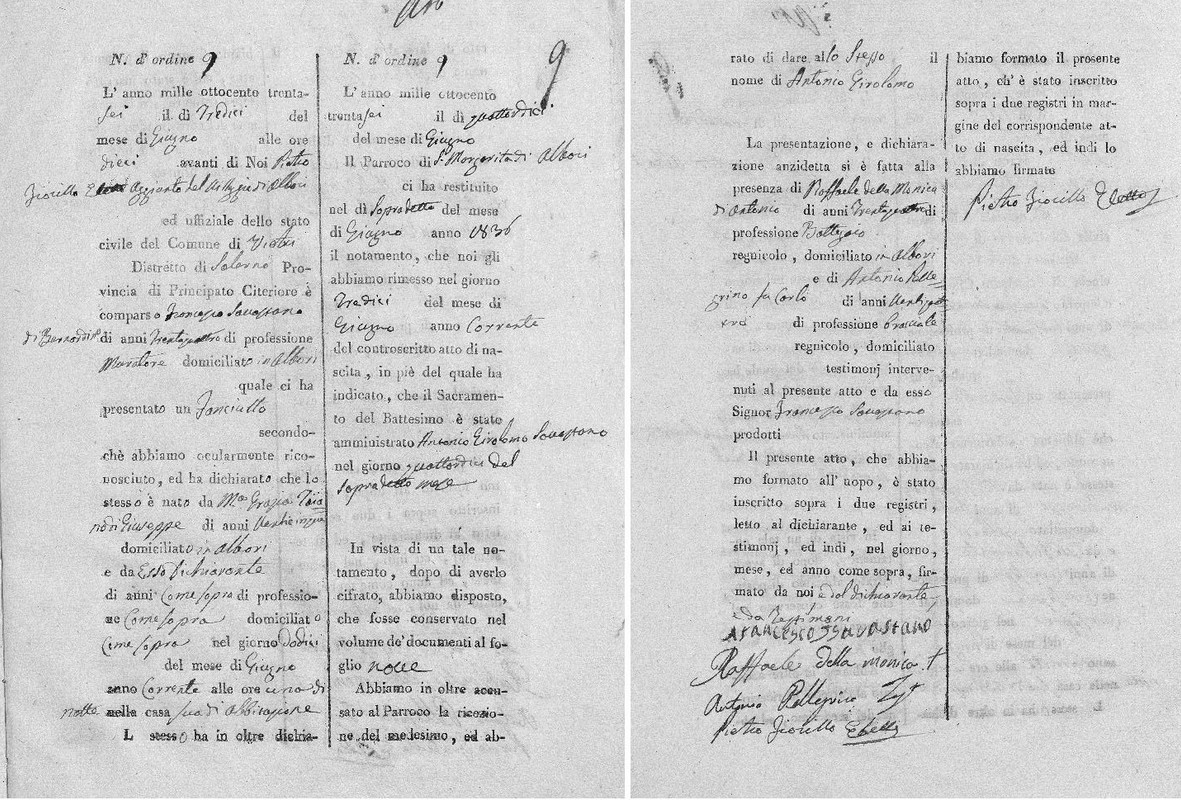 N. d' ordine 9
L' anno mille ottocento trenta-
sei il di Tredici del
mese di Giugno alle ore
dieci avanti di Noi Pietro
Fiorillo Aggiunto del Villaggio di Albori
ed uffiziale dello stato
civile del Comune di Vietri
Distretto di Salerno Pro-
vincia di Principato Citeriore è
comparso Francesco Savastano
di Bernardino di anni Trentaquattro di professione
Muratore domiciliato in Albori
quale ci ha
presentato un Fanciullo
secondo-
chè abbiamo ocularmente rico-
nosciuto, ed ha dichiarato che lo
stesso è nato da M.a Grazia Taia
no di Giuseppe di anni Venticinque
domiciliato in Albori
e da Esso Dichiarante
di anni Come sopra di professio-
ne Come sopra domiciliato
Come sopra nel giorno Dodici
del mese di Giugno
anno Corrente alle ore una di
notte nella casa sua di abbitazione
L stesso ha in oltre dichia-
N. d' ordine 9
9
L' anno mille ottocento
trentasei il di quattordici
del mese di Giugno
Il Parroco di S. Margarita di Albori
ci ha restituito
nel di sopradetto del mese
di Giugno anno 1836
il notamento, che noi gli
abbiamo rimesso nel giorno
Tredici del mese di
Giugno anno Corrente
del controscritto atto di na-
scita, in piè del quale ha
indicato, che il Sacramen-
to del Battesimo è stato
amministrato Antonio Girolomo Savastano
nel giorno quattordici del
sopradetto mese
In vista di un tale no-
tamento, dopo di averlo
cifrato, abbiamo disposto,
che fosse conservato nel
volume de' documenti al fo-
glio nove
Abbiamo in oltre accu-
sato al Parroco la ricezio-
ne del medesimo, ed ab-
rato di dare allo Stesso il
nome di Antonio Girolomo
La presentazione, e dichiara-
zione anzidetta si è fatta alla
presenza di Raffaele della Monica
di Antonio di anni Trentaquattro di
professione Bottegaio
regnicolo, domiciliato in Albori
e di Antonio Pelle-
grino fu Carlo di anni Ventiquat-
tro di professione Bracciale
regnicolo, domiciliato
testimonj interve-
nuti al presente atto e da esso
Signor Francesco Savastano
prodotti
Il presente atto, che abbia-
mo formato all' uopo, è stato
inscritto sopra i due registri,
letto al dichiarante, ed ai te-
stimonj, ed indi, nel giorno,
mese, ed anno come sopra, fir-
mato da noi e dal dichiarante,
e da Testimoni
Francesco Savastano
Raffaele della monica T
Antonio Pellegrino Test
Pietro Fiorillo Eletto
biamo formato il presente
atto, ch' è stato inscritto
sopra i due registri in mar-
gine del corrispondente at-
to di nascita, ed indi lo
abbiamo firmato
Pietro Fiorillo Eletto